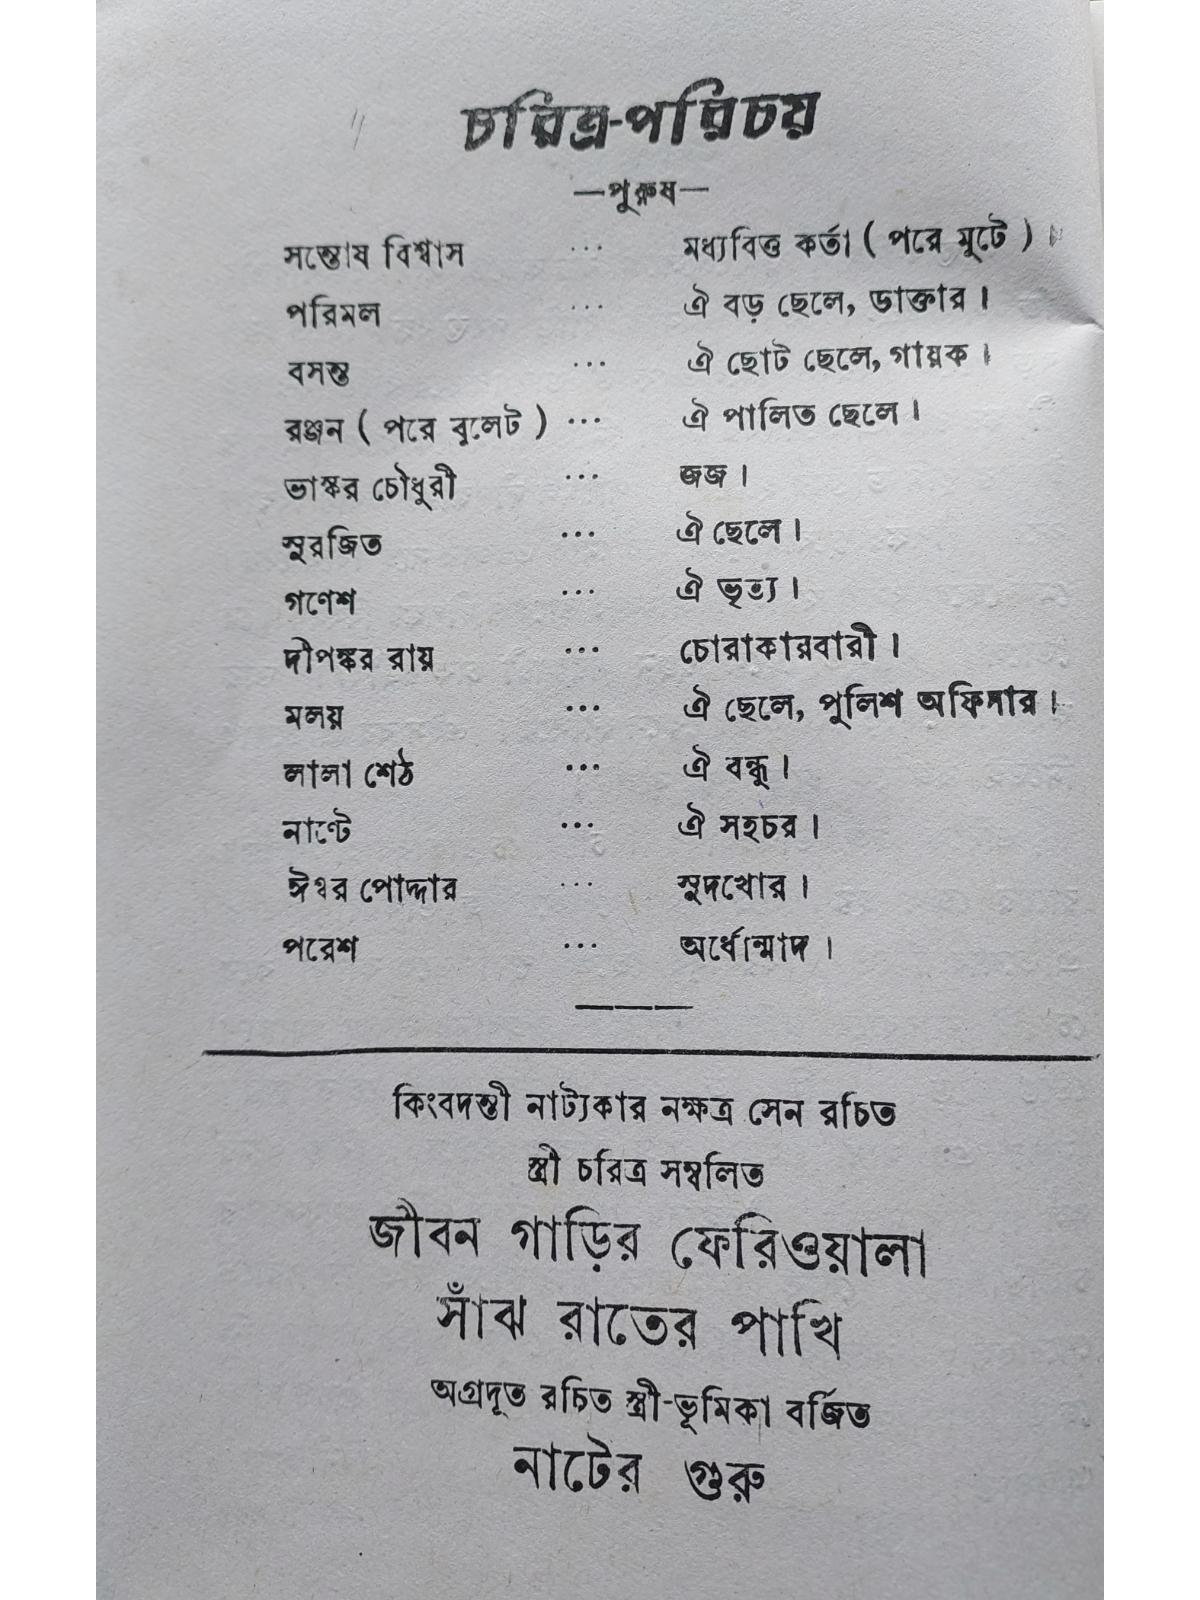 চরিত্র-পরিচয়
—পুরুষ—
সন্তোষ বিশ্বাস ... মধ্যবিত্ত কর্তা ( পরে মুটে ) ।
পরিমল ... ঐ বড় ছেলে, ডাক্তার ।
বসন্ত ... ঐ ছোট ছেলে, গায়ক ।
রঞ্জন ( পরে বুলেট ) ... ঐ পালিত ছেলে ।
ভাস্কর চৌধুরী ... জজ ।
সুরজিত ... ঐ ছেলে ।
গণেশ ... ঐ ভৃত্য ।
দীপঙ্কর রায় ... চোরাকারবারী ।
মলয় ... ঐ ছেলে, পুলিশ অফিসার ।
লালা শেঠ ... ঐ বন্ধু ।
নাণ্টে ... ঐ সহচর ।
ঈশ্বর পোদ্দার ... সুদখোর ।
পরেশ ... অর্ধোন্মাদ ।
কিংবদন্তী নাট্যকার নক্ষত্র সেন রচিত
স্ত্রী চরিত্র সম্বলিত
জীবন গাড়ির ফেরিওয়ালা
সাঁঝ রাতের পাখি
অগ্রদূত রচিত স্ত্রী-ভূমিকা বর্জিত
নাটের গুরু